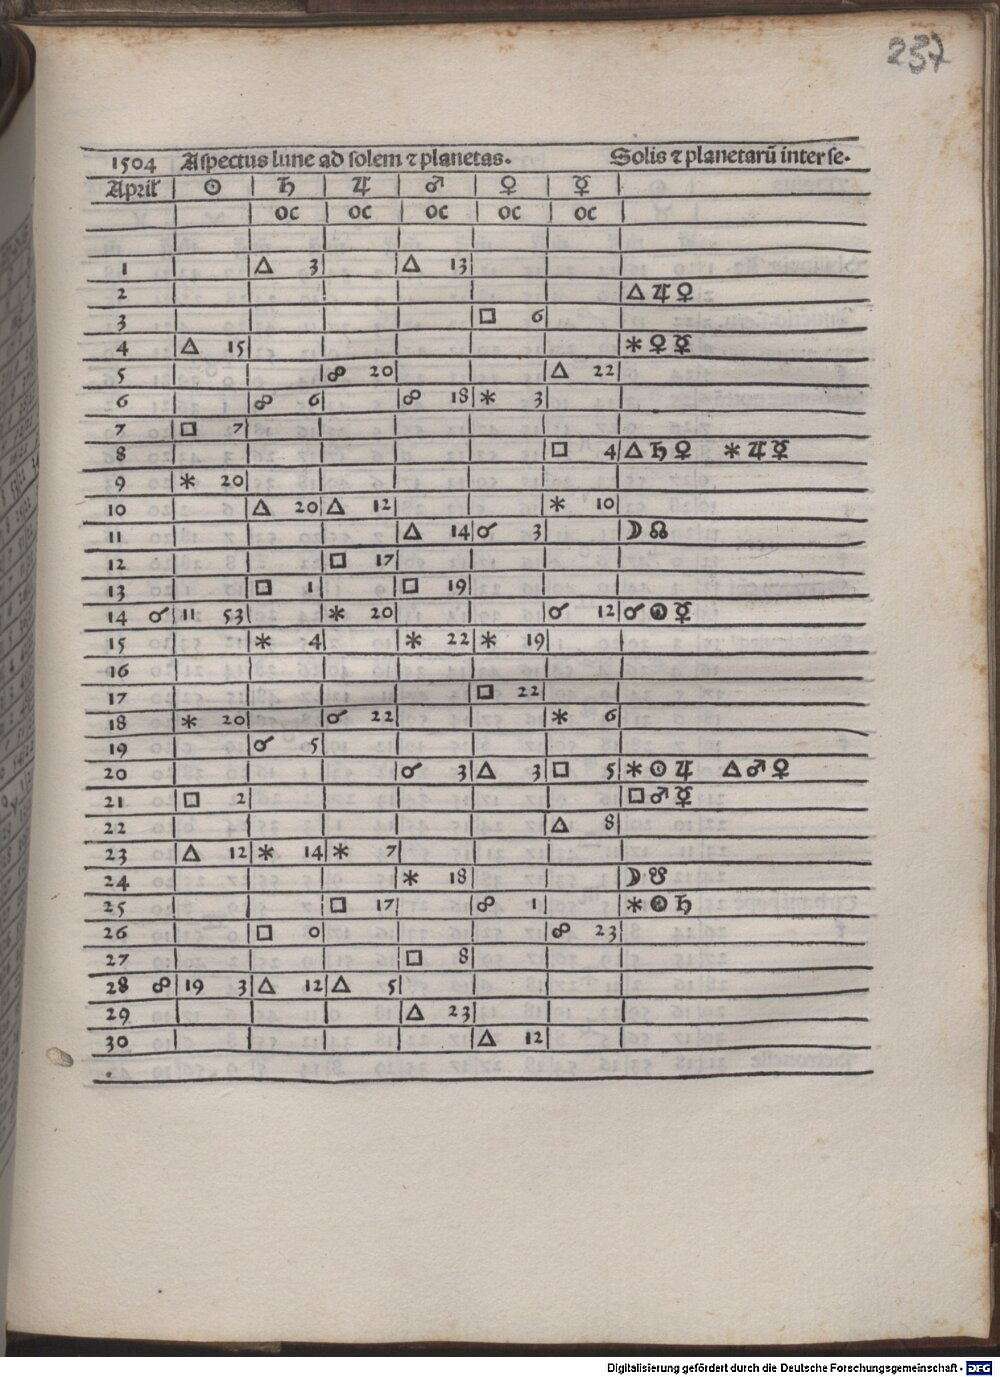 237
1504 Aſpectus lune ad ſolem ⁊ planetas. Solis ⁊ planetarū inter ſe.
April ☉ ♄ ♃ ♂ ♀ ☿
oc oc oc oc oc
1 △ 3 △ 13
2 △ ♃ ♀
3 □ 6
4 △ 15 ⚹ ♀ ☿
5 ☍ 20 △ 22
6 ☍ 6 ☍ 18 ⚹ 3
7 □ 7
8 □ 4 △ ♄ ♀ ⚹ ♃ ☿
9 ⚹ 20
10 △ 20 △ 12 ⚹ 10
11 △ 14 ☌ 3 ☽ ☊
12 □ 17
13 □ 1 □ 19
14 ☌ 11 53 ⚹ 20 ☌ 12 ☌ ☉ ☿
15 ⚹ 4 ⚹ 22 ⚹ 19
16
17 □ 22
18 ⚹ 20 ☌ 22 ⚹ 6
19 ☌ 5
20 ☌ 3 △ 3 □ 5 ⚹ ☉ ♃ △ ♂ ♀
21 □ 2 □ ♂ ☿
22 △ 8
23 △ 12 ⚹ 14 ⚹ 7
24 ⚹ 18 ☽ ☋
25 □ 17 ☍ 1 ⚹ ☉ ♄
26 □ 0 ☍ 23
27 □ 8
28 ☍ 19 3 △ 12 △ 5
29 △ 23
30 △ 12
Digitalisierung gefördert durch die Deutsche Forschungsgemeinschaft - DFG